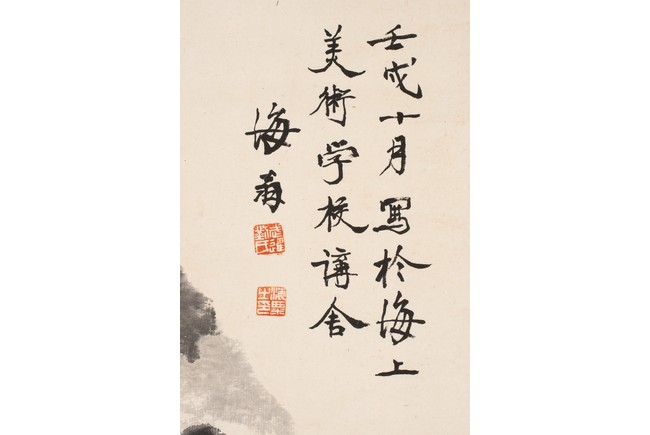 壬戌十月写於海上
美術学校講舍
海翁